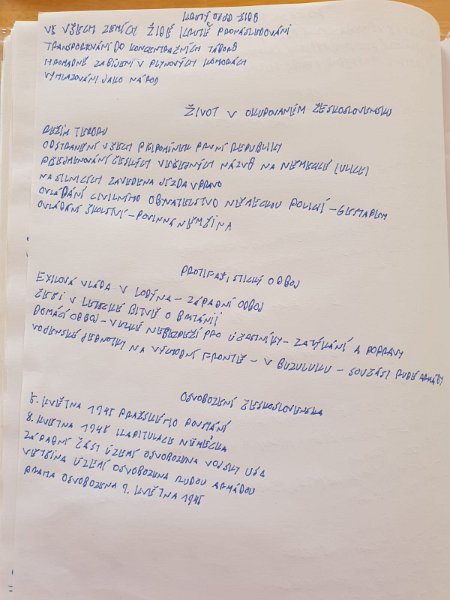 KRUTÝ OSUD ŽIDŮ
VE VŠECH ZEMÍCH ŽIDÉ KRUTĚ PRONÁSLEDOVÁNI
TRANSPORTOVÁNI DO KONCENTRAČNÍCH TÁBORŮ
HROMADNĚ ZABÍJENI V PLYNOVÝCH KOMORÁCH
VYHLAZOVÁNI JAKO NÁROD
ŽIVOT V OKUPOVANÉM ČESKOSLOVENSKU
REŽIM TERORU
ODSTRANĚNÍ VŠECH PŘIPOMÍNEK PRVNÍ REPUBLIKY
PŘEJMENOVÁNÍ ČESKÝCH VEŘEJNÝCH NÁZVŮ NA NĚMECKÉ (ULICE)
NA SILNICÍCH ZAVEDENA JÍZDA VPRAVO
OVLÁDÁNÍ CIVILNÍHO OBYVATELSTVO NĚMECKOU POLICIÍ - GESTAPEM
OVLÁDÁNÍ ŠKOLSTVÍ - POVINNÁ NĚMČINA
PROTIFAŠISTICKÝ ODBOJ
EXILOVÁ VLÁDA V LODÝNA - ZÁPADNÍ ODBOJ
ČEŠI V LETECKÉ BITVĚ O BRITÁNII
DOMÁCÍ ODBOJ - VELKÉ NEBEZPEČÍ PRO ÚČASTNÍKY - ZATÝKÁNÍ A POPRAVY
VOJENSKÉ JEDNOTKY NA VÝCHODNÍ FRONTĚ - V BUZULUKU - SOUČÁSTÍ RUDÉ ARMÁDY
OSVOBOZENÍ ČESKOSLOVENSKA
5. KVĚTNA 1945 PRAŽSKÉHO POVSTÁNÍ
8. KVĚTNA 1945 KAPITULACE NĚMECKA
ZÁPADNÍ ČÁST ÚZEMÍ OSVOBOZENA VOJSKY USA
VĚTŠINA ÚZEMÍ OSVOBOZENA RUDOU ARMÁDOU
PRAHA OSVOBOZENA 9. KVĚTNA 1945